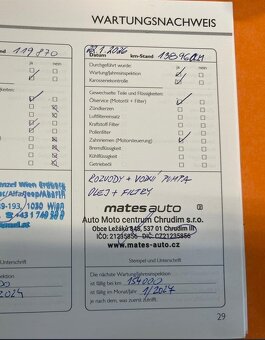 WARTUNGSNACHWEIS
119.870
ja nein
Wien
1030 Wien
und Unterschrift
2024
22.1.2026
Datum km-Stand
Durchgeführt wurde: ja nein
Wartung/Jahresinspektion
Karosseriekontrolle
Gewechselte Teile und Flüssigkeiten:
Ölservice (Motoröl + Filter)
Zündkerzen
Luftfilter
Kraftstoff Filter
Pollenfilter
Zahnriemen (Motorsteuerung)
Bremsflüssigkeit
Kühlflüssigkeit
Getriebeöl
ROZVODY + VODNÍ PUMPA
OLEJ + FILTRY
mates auto
Auto Moto centrum Chrudim s.r.o.
Obce Ležáků 848, 537 01 Chrudim III
IČO: 21235856 DIČ: CZ21235856
www.mates-auto.cz
Stempel und Unterschrift
Die nächste Wartung/Jahresinspektion
ist fällig bei km 154000
ist fällig im Monat/Jahr 1/2027
je nach dem, was zuerst zutrifft
29